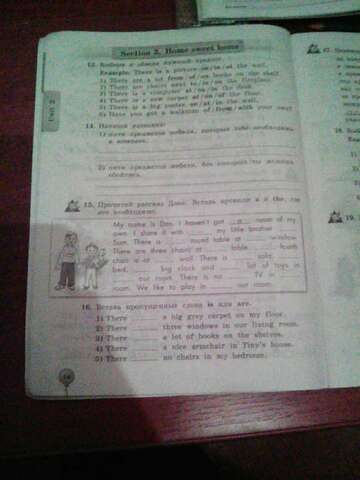 Section 2. Home sweet home
Unit 2
13. Выбери и обведи нужный предлог.
Example: There is a picture on/in/at the wall.
1) There are a lot from/of/on books on the shelf.
2) There are chairs next to/in/on the fireplace.
3) There is a computer at/on/in the desk.
4) There is a new carpet at/on/of the floor.
5) There is a big centre on/at/in the wall.
6) Have you got a walkman of/from/with your
14. Напиши названия:
1) пяти предметов мебели, которые тебе необходимы
в комнате.
2) пяти предметов мебели, без которых ты можешь
обойтись.
15. Прочитай рассказ Дэна. Вставь артикли a и the, где
это необходимо.
My name is Dan. I haven't got a room of my
own. I share it with my little brother
Sam. There is round table at window.
There are three chairs at table. fourth
chair is at wall. There is sofa,
bed, big clock and lot of toys in
our room. There is no TV in
room. We like to play in our room.
16. Вставь пропущенные слова is или are.
1) There a big grey carpet on my floor.
2) There three windows in our living room.
3) There a lot of books on the shelves.
4) There a nice armchair in Tiny's house.
5) There no chairs in my bedroom.